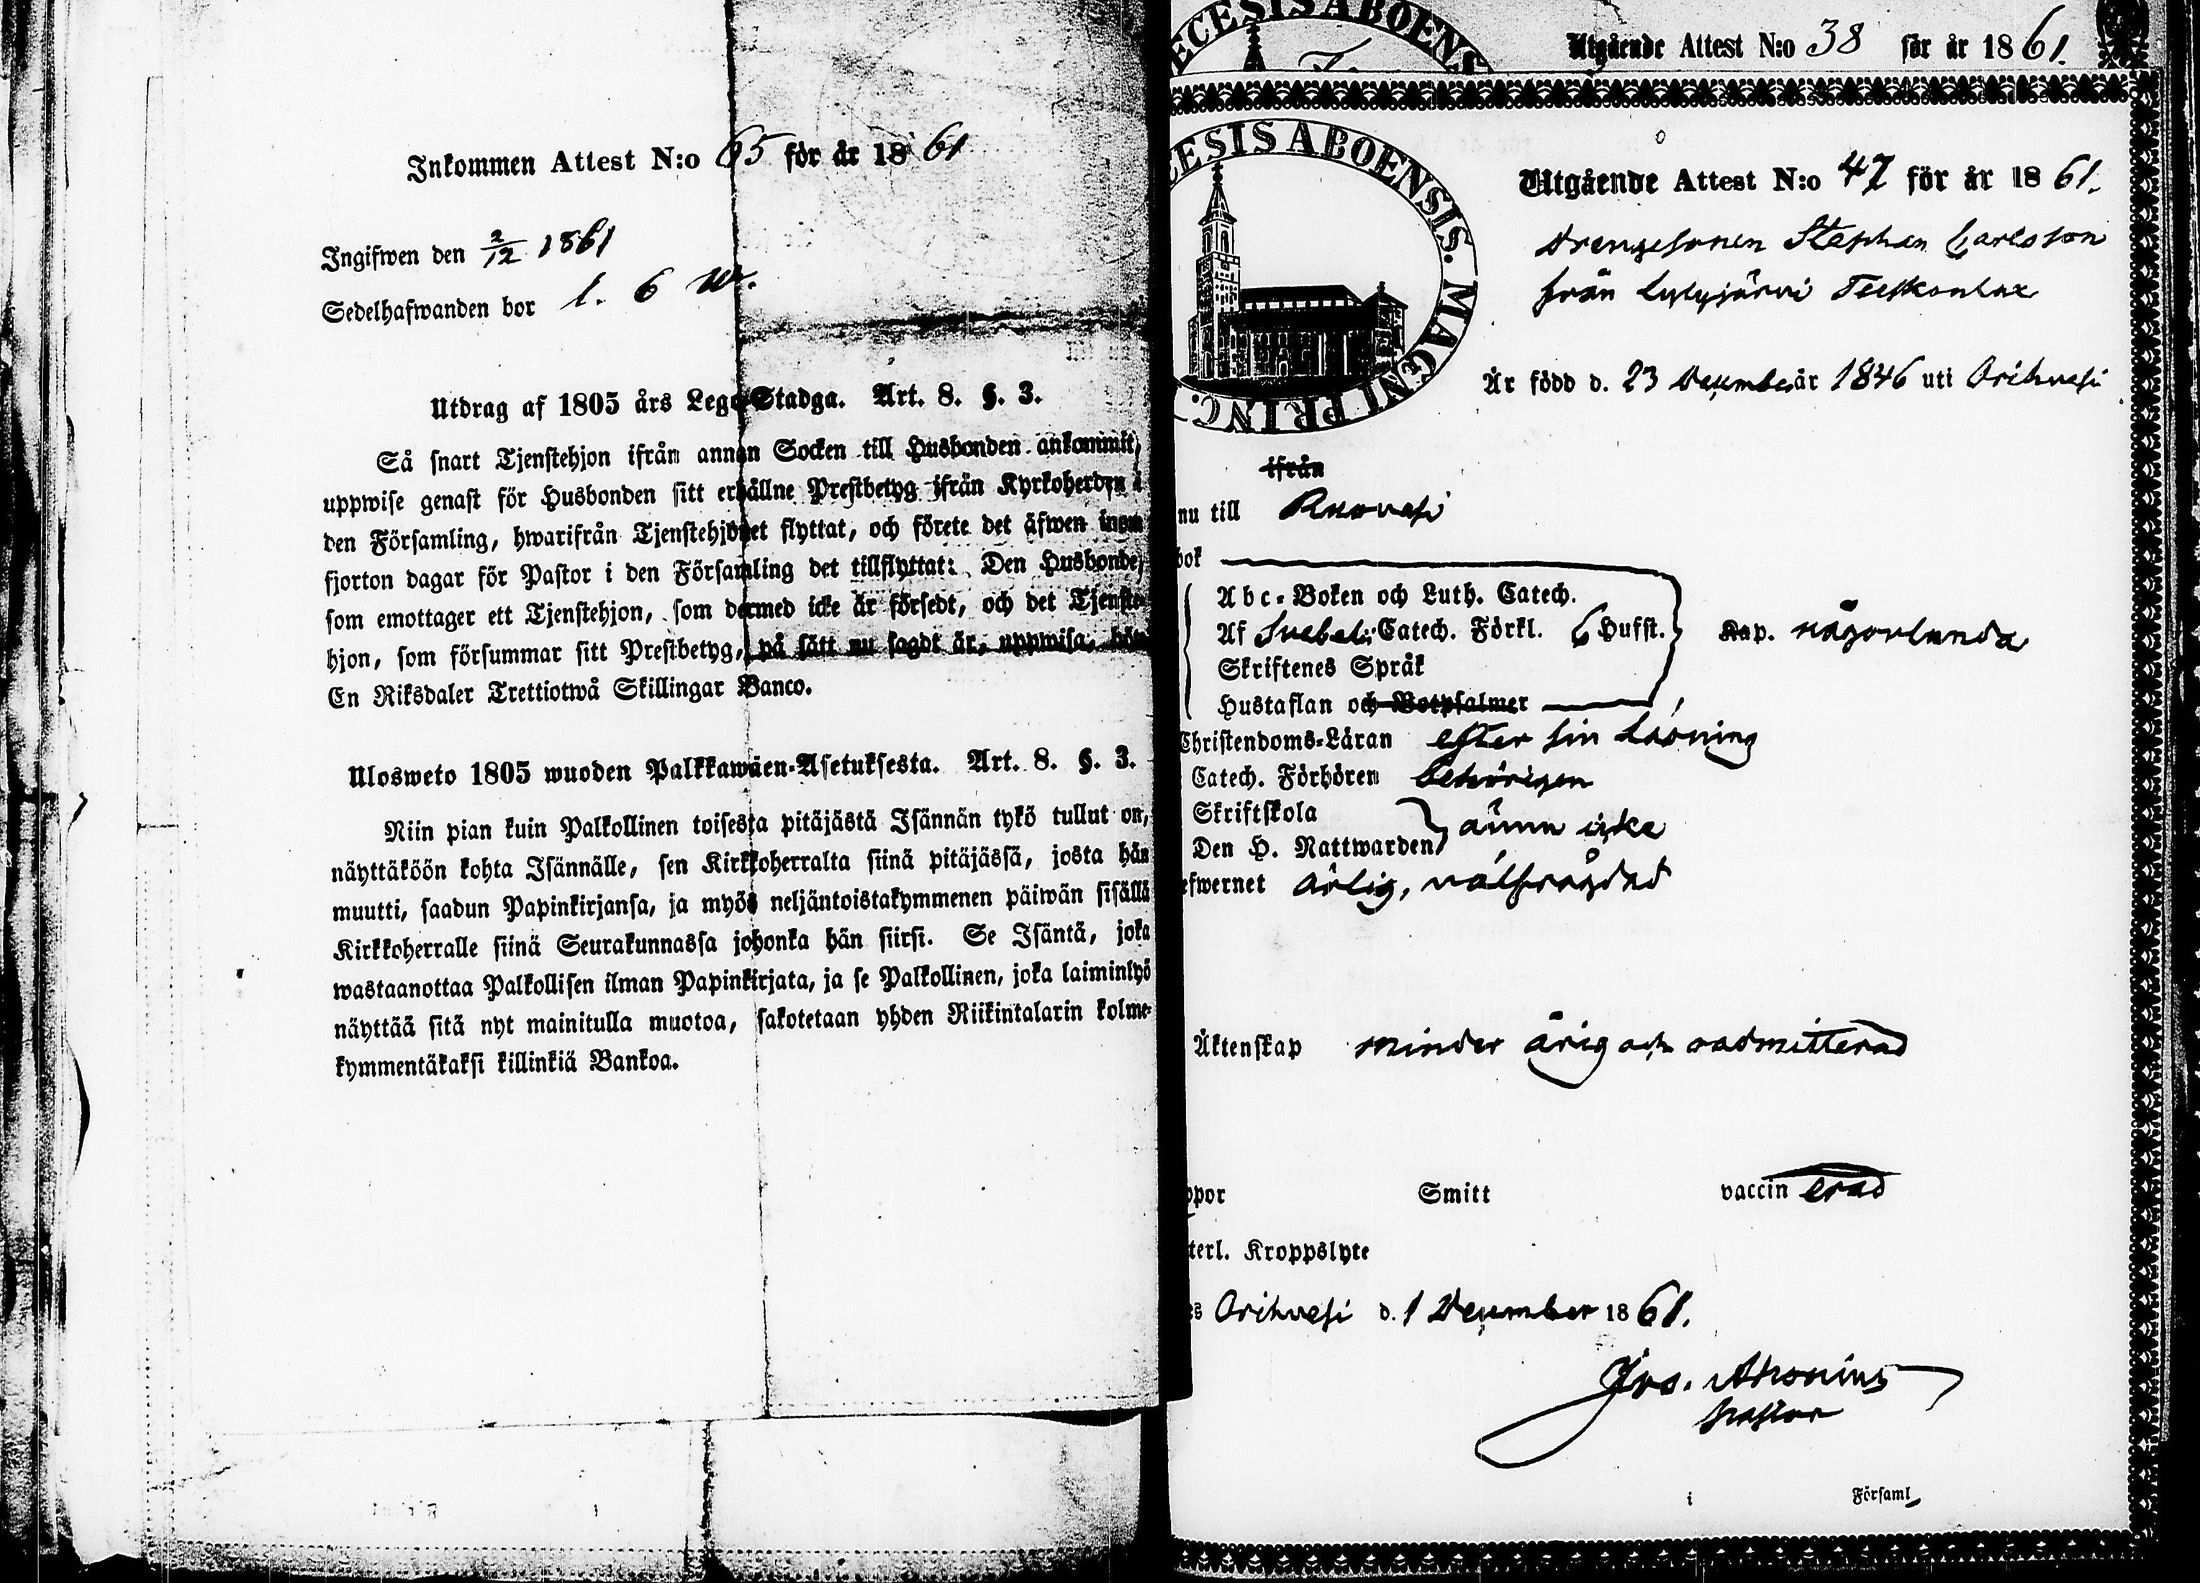 Inkommen Attest N:o 65 för år 1861
Ingifwen den 2/12 1861
Sedelhafwanden bor l. 6 W.
Utdrag af 1805 års Lego-Stadga. Art. 8. §. 3.
Så snart Tjenstehjon ifrån annan Socken till Husbonden ankommit,
uppwise genast för Husbonden sitt erhållne Prestbetyg ifrån Kyrkoherden i
den Församling, hwarifrån Tjenstehjonet flyttat, och förete det äfwen inom
fjorton dagar för Pastor i den Församling det tillflyttat: Den Husbonde,
som emottager ett Tjenstehjon, som dermed icke är försedt, och det Tjenste-
hjon, som försummar sitt Prestbetyg, på sätt nu sagdt är, uppwisa, böte
En Riksdaler Trettiotwå Skillingar Banco.
Ulosweto 1805 wuoden Palkkawäen-Asetuksesta. Art. 8. §. 3.
Niin pian kuin Palkollinen toisesta pitäjästä Isännän tykö tullut on,
näyttäköön kohta Isännälle, sen Kirkkoherralta siinä pitäjässä, josta hän
muutti, saadun Papinkirjansa, ja myös neljäntoistakymmenen päiwän sisällä
Kirkkoherralle siinä Seurakunnassa johonka hän siirsi. Se Isäntä, joka
wastaanottaa Palkollisen ilman Papinkirjata, ja se Palkollinen, joka laiminlyö
näyttää sitä nyt mainitulla muotoa, sakotetaan yhden Riikintalarin kolme-
kymmentäkaksi killinkiä Bankoa.
ECESIS ABOENS
Utgående Attest N:o 38 för år 1861.
ESIS ABOENSIS. MAGNI PRINC.
Utgående Attest N:o 47 för år 1861.
drengesonen Stephan Carlsson
från Lylyjärvi
Är född d. 23 December år 1846 uti Orihvesi
ifrån
nu till Ruovesi
bok
Abc-Boken och Luth. Catech.
Af Svebel: Catech. Förkl. 6 Hufst. Kap. någorlunda
Skriftenes Språk
Hustaflan och Botpsalmer
Christendoms-Läran efter sin läsning
Catech. Förhören behörigen
Skriftskola
Den H. Nattwarden ännu icke
efwernet ärlig, välfrägdad
Äktenskap minder årig och oadmitterad
ppor Smitt vaccinerad
terl. Kroppslyte
es Orihvesi d. 1 December 1861.
Pastor
i Församl